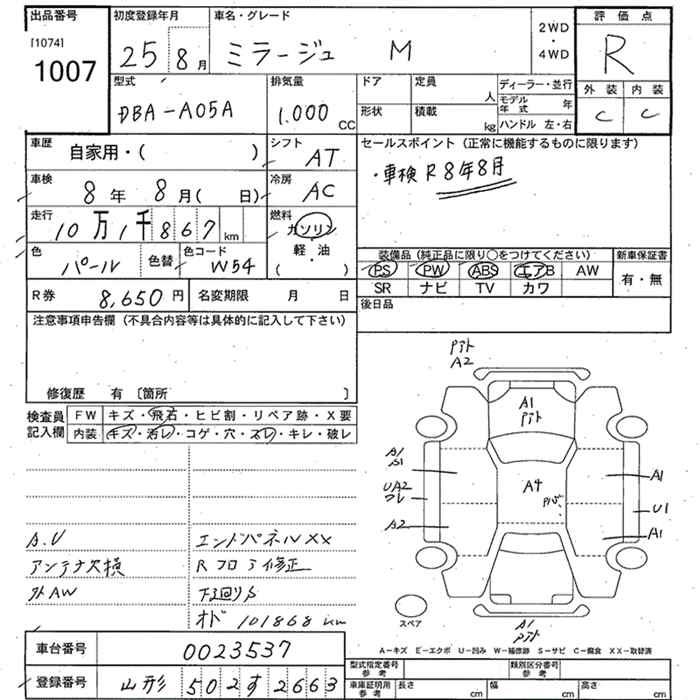 出品番号 初度登録年月 車名・グレード 2WD・4WD 評価点
[1074]
1007 25 8月 ミラージュ M R
型式 排気量 ドア 定員 人 ディーラー・並行 外装 内装
DBA-A05A 1.000 CC 形状 積載 kg モデル年式 年 C C
ハンドル 左・右
車歴 自家用・( ) シフト AT セールスポイント(正常に機能するものに限ります)
車検 8年 8月( 日) 冷房 AC ・車検R8年8月
走行 10万1千867km 燃料 ガソリン
色 パール 色替 色コード W54 軽・油
( )
装備品(純正品に限り〇をつけてください) 新車保証書
PS PW ABS エアB AW 有・無
SR ナビ TV カワ
R券 8,650円 名変期限 月 日 後日品
注意事項申告欄(不具合内容等は具体的に記入して下さい)
修復歴 有 [箇所 ]
検査員記入欄 FW キズ・飛石・ヒビ割・リペア跡・X要
内装 キズ・汚レ・コゲ・穴・スレ・キレ・破レ
A2
A1
A1
S1
A1
UA2
A4
U1
A2
A1
A.U エンドパネルXX
アンテナ欠検 Rフロア修正
外AW 下回りS
オド 101868km
スペア
A1
A-キズ E-エクボ U-凹み W-補修跡 S-サビ C-腐食 XX-取替済
車台番号 0023537
登録番号 山形 502す2663
型式指定番号 参考 類別区分番号 参考
車庫証明用 参考 長さ cm 幅 cm 高さ cm